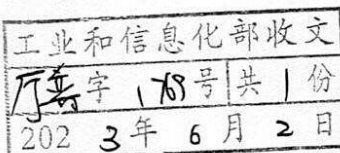 工业和信息化部收文
厅 字 1769号 共 1 份
202 3 年 6 月 2 日